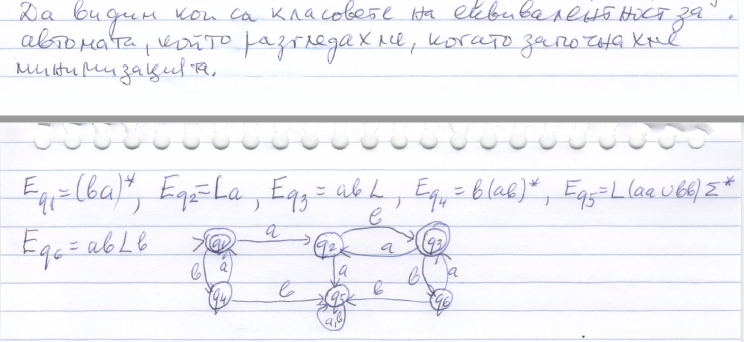 Да видим кои са класовете на еквивалентност за
автомата, който разгледахме, когато започнахме
минимизацията.
E_q1=(ba)*, E_q2=La, E_q3=abL, E_q4=b(ab)*, E_q5=L(aa∪bb)Σ*
E_q6=abLb
q1 a q2 b a q3
b a a b a
q4 b q5 b q6
a,b